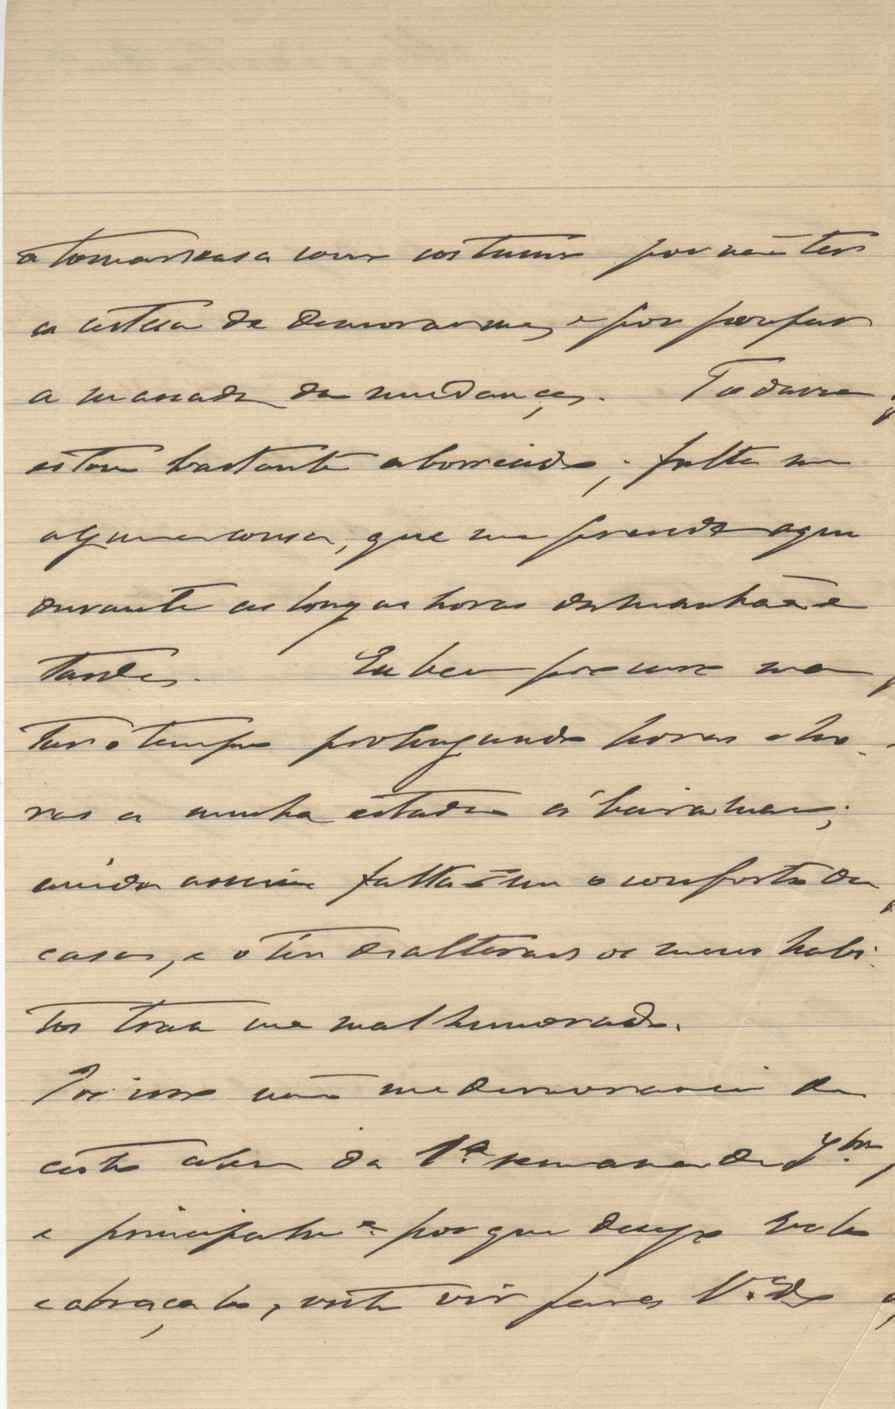 a tomar casa como costumo por não ter
a certeza de demorar-me, e por poupar
a massada da mudança. Todavia
estou bastante aborrecido; falta-me
alguma cousa, que me prenda aqui
durante as longas horas da manhã e
tarde. Eu bem procuro ma
tar o tempo prolongando horas e ho-
ras a minha estada á beira mar;
ainda assim falta-me o conforto da
casa, e o ter de alterar os meus habi-
tos traz me mal humorado.
Por isso não me demorarei de
certo alem da 1ª semana de 7bro,
e principalmᵉ porque desejo vel-os
e abraçal-os, visto vir para